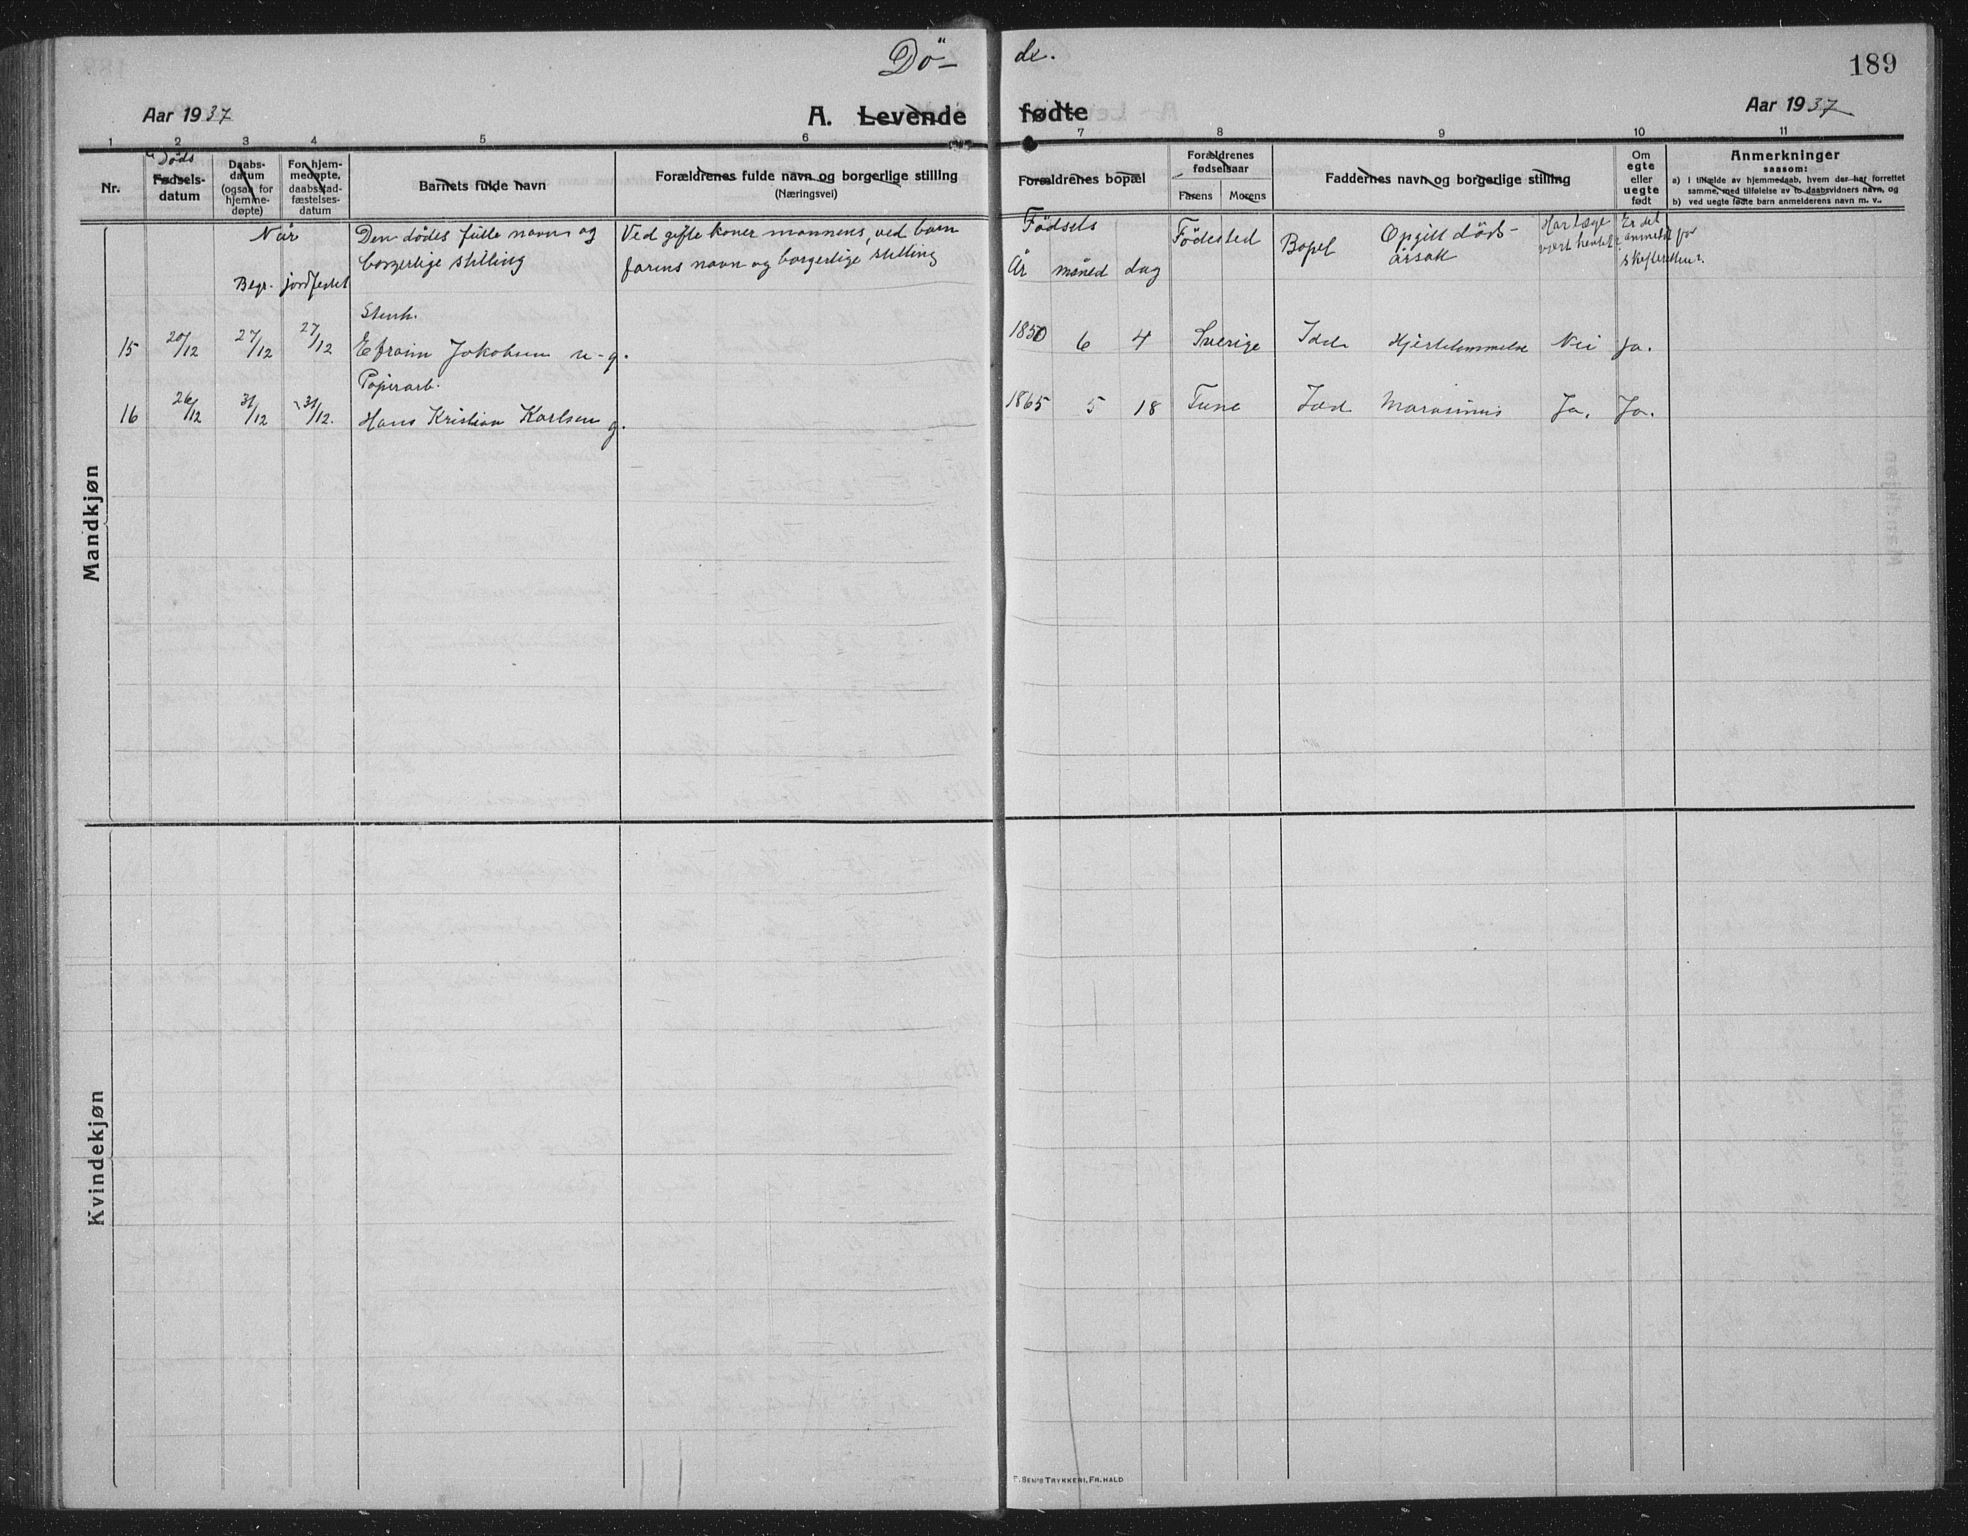 Dö- de.
189
Aar 1937 A. Levende fødte Aar 1937
1 2 3 4 5 6 7 8 9 10 11
Nr.
Døds
Fødsels-
datum
Daabs-
datum
(ogsaa for
hjemme-
døpte)
For hjem-
medøpte,
daabsstad-
fæstelses-
datum
Barnets fulde navn
Forældrenes fulde navn og borgerlige stilling
(Næringsvei)
Forældrenes bopæl
Forældrenes
fødselsaar
Farens Morens
Faddernes navn og borgerlige stilling
Om
egte
eller
uegte
født
Anmerkninger
saasom:
a) I tilfælde av hjemmedaab, hvem der har forrettet
samme, med tilføielse av to daabsvidners navn, og
b) ved uegte fødte barn anmelderens navn m. v..
Når
Begr. jordfestet
Den dødes fulle navn og
borgerlige stilling
Ved gifte koner mannens, ved barn
farens navn og borgerlige stilling
Fødsels
År måned dag
Fødested
Bopel
Opgitt døds-
årsak
Har læge
vært hentet
Er det
anmeldt for
skifteretten.
Mandkjøn
Stenh.
15 20/12 27/12 27/12 Efraim Jakobsen u-g. 1850 6 4 Sverige Idd Hjertelammelse Nei Ja.
Papirarb.
16 26/12 31/12 31/12. Hans Kristian Karlsen g. 1865 5 18 Tune Idd Marasmus Ja. Ja.
Kvindekjøn
SEN'S TRYKKERI, FR.HALD